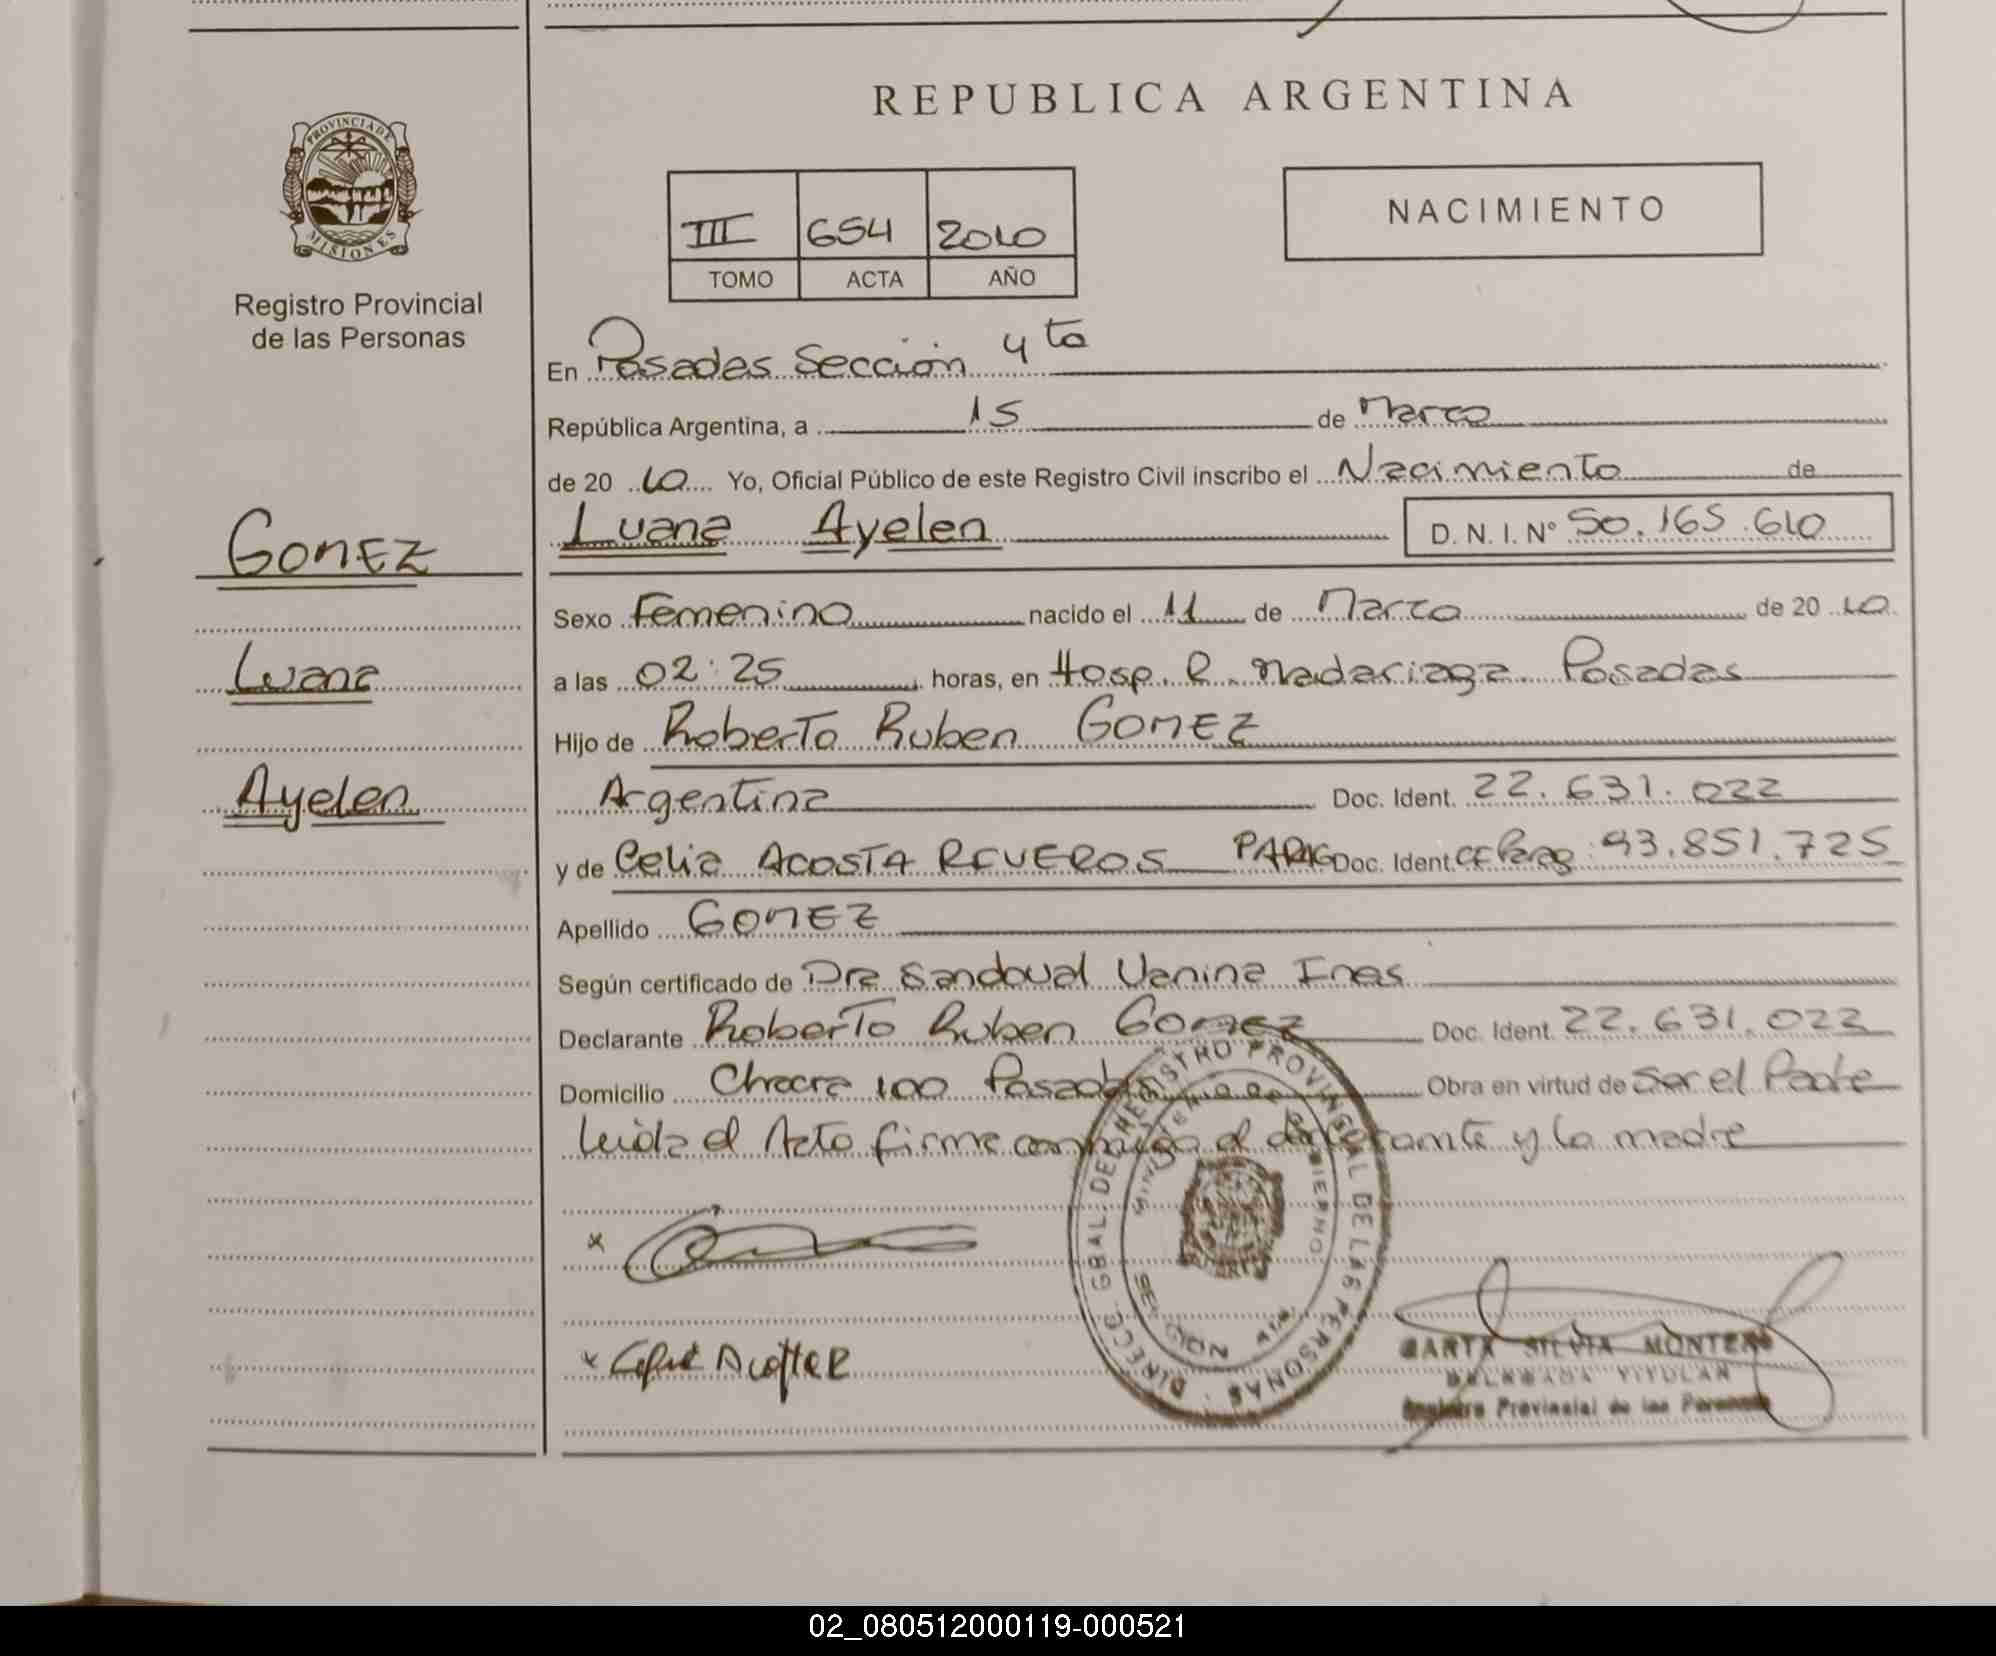 REPUBLICA ARGENTINA
PROVINCIA DE
MISIONES
Registro Provincial
de las Personas
III 654 2010
TOMO ACTA AÑO
NACIMIENTO
En Posadas Sección 4ta
República Argentina, a 15 de Marzo
de 2010 Yo, Oficial Público de este Registro Civil inscribo el Nacimiento de
GOMEZ
Luana
Ayelen
Luana Ayelen D.N.I. Nº 50.165.610
Sexo Femenino nacido el 11 de Marzo de 2010
a las 02:25 horas, en Hosp. R. Madariaga Posadas
Hijo de Roberto Ruben GOMEZ
Argentina Doc. Ident. 22.631.022
y de Celia ACOSTA REVEROS PARAG Doc. Ident. CF Parag 93.851.725
Apellido GOMEZ
Según certificado de Dra Sandoval Vanina Ines
Declarante Roberto Ruben Gomez Doc. Ident. 22.631.022
Domicilio Chacra 100 Posadas Obra en virtud de Ser el Padre
Leida el Acta firma conmigo el declarante y la madre
DIRECC. GRAL. DEL REGISTRO PROVINCIAL DE LAS PERSONAS
MINISTERIO DE GOBIERNO
SECCION 4ta
SILVIA MONTERO
Registro Provincial de las Personas
02_080512000119-000521